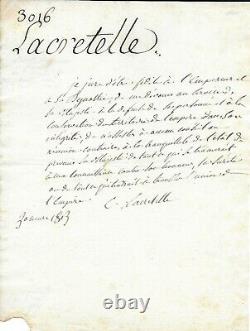 3016
Lacretelle.
je jure d'être fidèle à l'Empereur et
à Sa Dynastie, de me dévouer au service de
Sa Majesté à la défense de Sa personne et à la
conservation du territoire de l'empire dans son
intégrité, de n'assister à aucun conseil ou
réunion contraire à la tranquillité de l'état de
prévenir Sa Majesté de tout ce qui se trameroit
à ma connaissance contre son honneur, sa Sureté
ou de tout ce qui tendroit à troubler l'union de
l'empire.
C. Lacretelle
30 1813